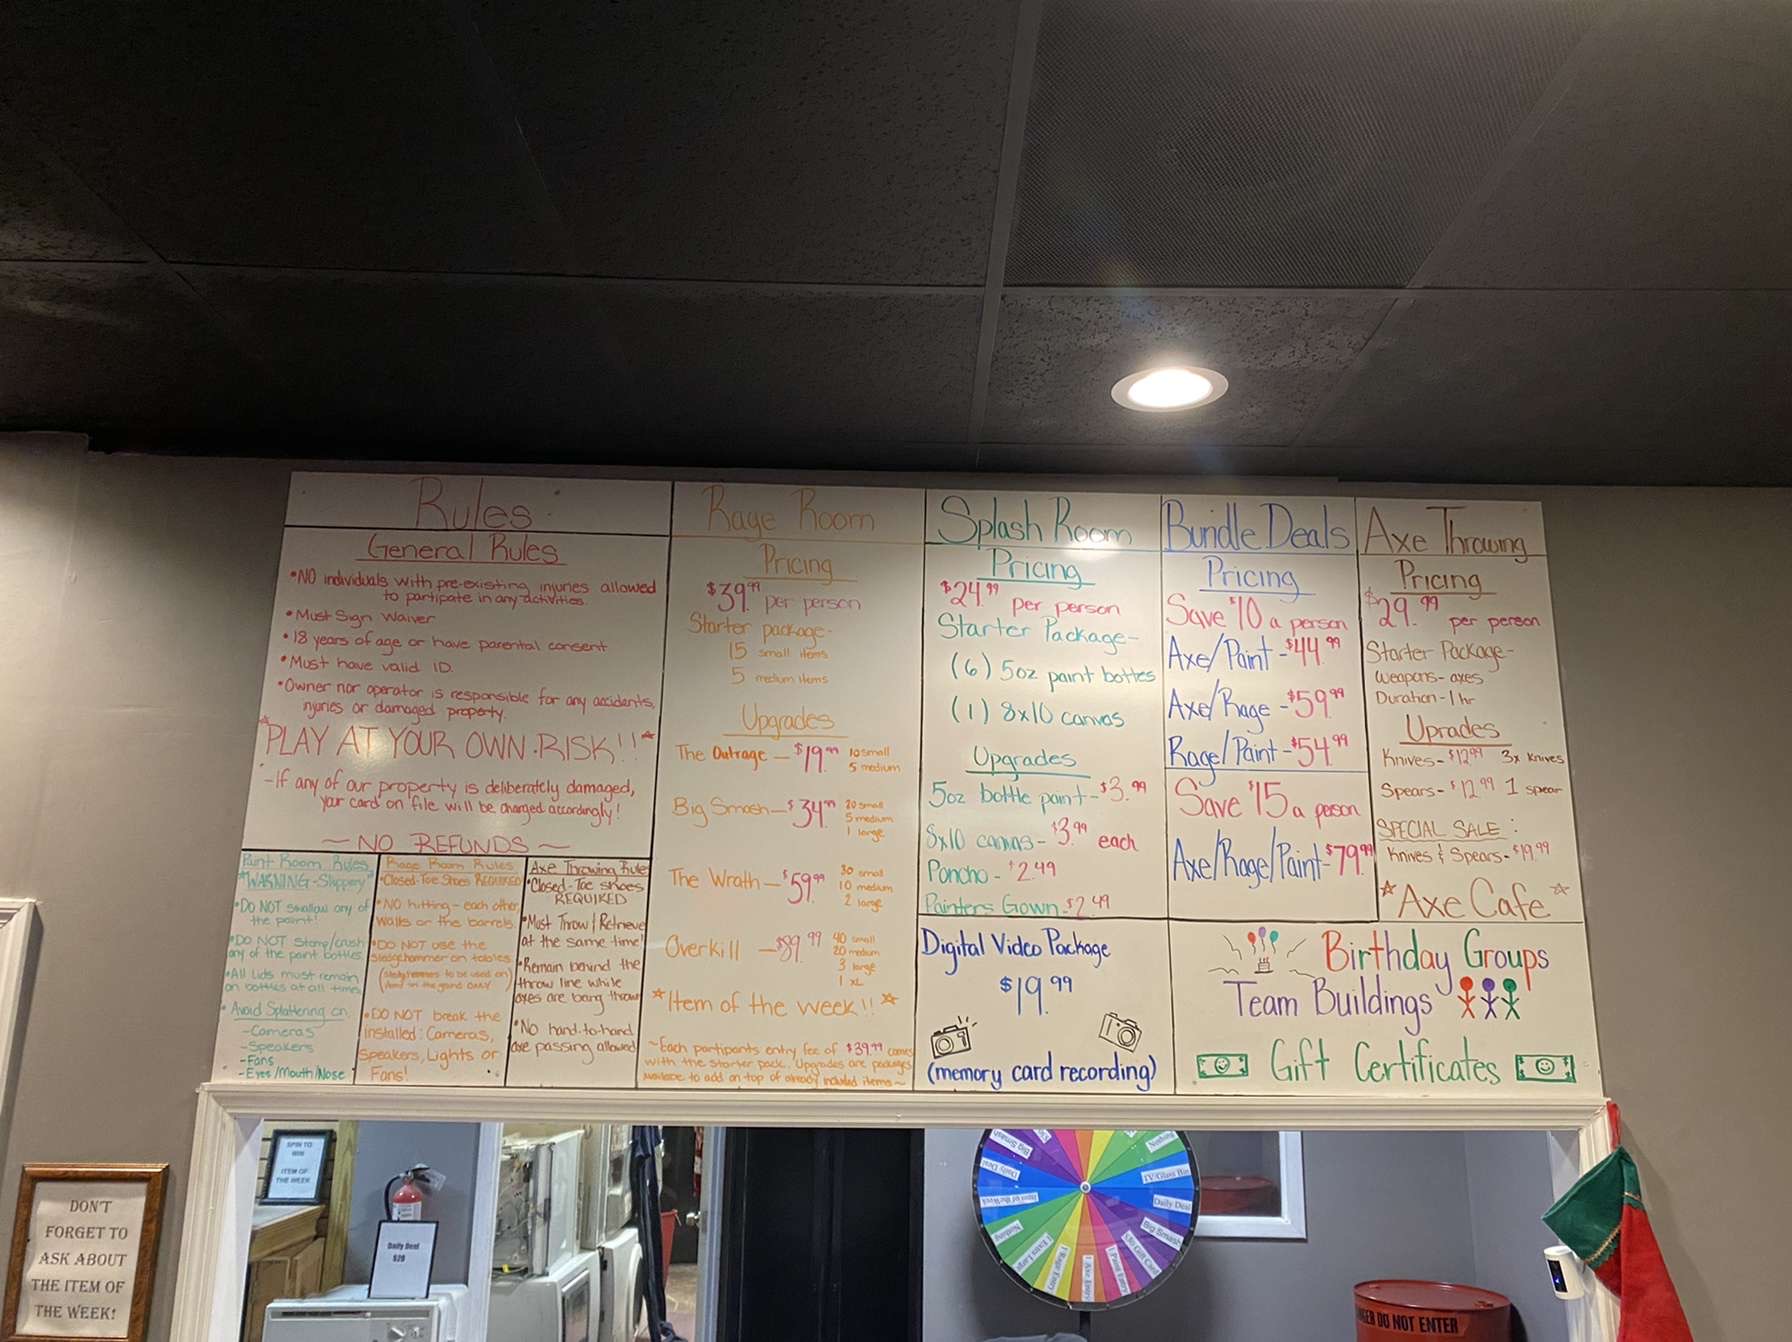 Rules
General Rules
•NO individuals with pre-existing injuries allowed
to partipate in any activities.
•Must Sign Waiver
•18 years of age or have parental consent
•Must have valid ID.
•Owner nor operator is responsible for any accidents,
injuries or damaged property.
☆PLAY AT YOUR OWN RISK!!☆
-If any of our property is deliberately damaged,
your card on file will be charged accordingly!
~NO REFUNDS~
Paint Room Rules
*WARNING-Slippery*
•DO NOT swallow any of
the paint!
•DO NOT Stomp/crush
any of the paint bottles.
•All Lids must remain
on bottles at all times
•Avoid Splattering on:
-Cameras
-Speakers
-Fans
-Eyes/Mouth/Nose
Rage Room Rules
•Closed-Toe Shoes REQUIRED
•NO hitting-each other,
walls or the barrels.
•DO NOT use the
sledgehammer on tables
•DO NOT break the
installed: Cameras,
Speakers, Lights or
Fans!
Axe Throwing Rules
•Closed-Toe shoes
REQUIRED
•Must Throw & Retrieve
at the same time!
•Remain behind the
throw line while
axes are being thrown
•No hand-to-hand
axe passing allowed
Rage Room
Pricing
$39.99 per person
Starter package-
15 small items
5 medium items
Upgrades
The Outrage — $19.99 10 small
5 medium
Big Smash — $34.99 20 small
5 medium
1 large
The Wrath — $59.99 30 small
10 medium
2 large
Overkill — $89.99 40 small
20 medium
3 large
1 XL
☆Item of the week!!☆
~Each participants entry fee of $39.99 comes
with the starter pack. Upgrades are packages
available to add on top of already included items~
Splash Room
Pricing
$24.99 per person
Starter Package-
(6) 5oz paint bottles
(1) 8x10 canvas
Upgrades
5oz bottle paint-$3.99
8x10 canvas-$3.99 each
Poncho-$2.49
Painters Gown-$2.49
Digital Video Package
$19.99
(memory card recording)
Bundle Deals
Pricing
Save $10 a person
Axe/Paint-$44.99
Axe/Rage-$59.99
Rage/Paint-$54.99
Save $15 a person
Axe/Rage/Paint-$79.99
Axe Throwing
Pricing
$29.99 per person
Starter Package-
Weapons-axes
Duration-1 hr
Uprades
Knives-$12.99 3x knives
Spears-$12.99 1 spear
SPECIAL SALE:
Knives & Spears-$19.99
☆Axe Cafe☆
Birthday Groups
Team Buildings
Gift Certificates
SPIN TO
WIN
ITEM OF
THE WEEK
Daily Deal
$20
DON'T
FORGET TO
ASK ABOUT
THE ITEM OF
THE WEEK!
Big Smash
Daily Deal
Item of the Week
Nothing
1 Extra Large
1 Rage Entry
1 Axe Entry
1 Paint Entry
Big Smash
Daily Deal
Nothing
DO NOT ENTER